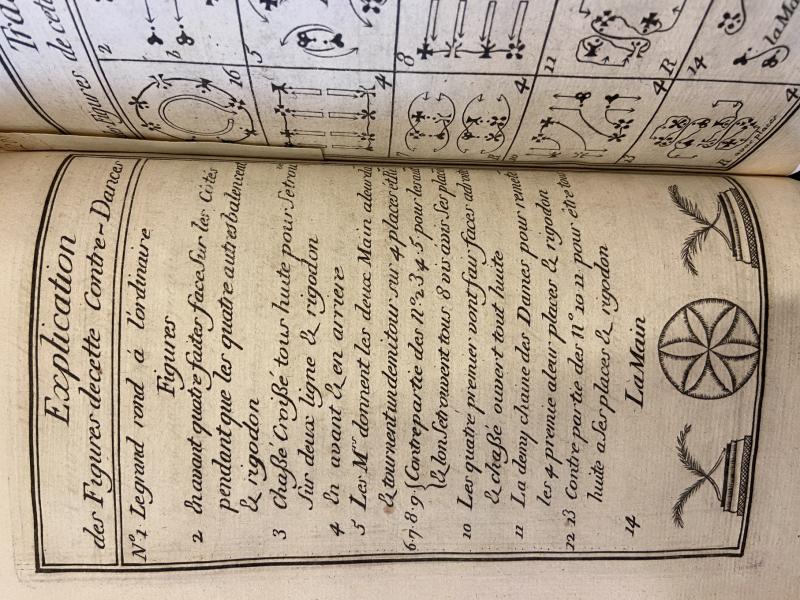 Explication
des Figures decette Contre-Dances
N.º 1 Legrand rond á l'ordinaire
Figures
2 En avant quatre faites face Sur les Côtés
pendant que les quatre autres balencent
& rigodon
3 Chaßé Croißé tous huite pour Se trou
Sur deux ligne & rigodon
4 En avant & en arriere
5 Les M.rs donnent les deux Main
& tournent un demi tour sur 4 places
6·7·8·9· Contre partie des n.º 2 3 4 5 pour
& lon Se trouvent tous 8 vis avis Ses
10 Les quatre premier vont fair faces
& chaßé ouvert tout huite
11 La demy chaine des Dames pour
les 4 premie aleur places & rigodon
12 13 Contre partie des N.º 10 11 pour être
huite a Ses places & rigodon
14 La Main
Figures de cette
2
16
5
4
8
4
11
R
4
14
la Main
R
4